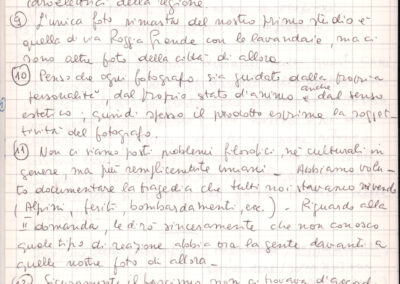 idroelettrici della regione.
9) L'unica foto rimasta del nostro primo studio è
quella di via Roggia Grande con le lavandaie, ma ci
sono altre foto della città di allora.
10) Penso che ogni fotografo sia guidato dalla propria
personalità, dal proprio stato d'animo e anche dal senso
estetico; quindi spesso il prodotto esprime la sogget-
tività del fotografo.
11) Non ci siamo posti problemi filosofici, nè culturali in
genere, ma più semplicemente umani - Abbiamo volu-
to documentare la tragedia che tutti noi stavamo vivendo
(Alpini, feriti, bombardamenti, ecc.) - Riguardo alla
II domanda, le dirò sinceramente che non conosco
quale tipo di reazione abbia ora la gente davanti a
quelle nostre foto di allora -
12) Sicuramente il fascismo non ci trovava d'accord